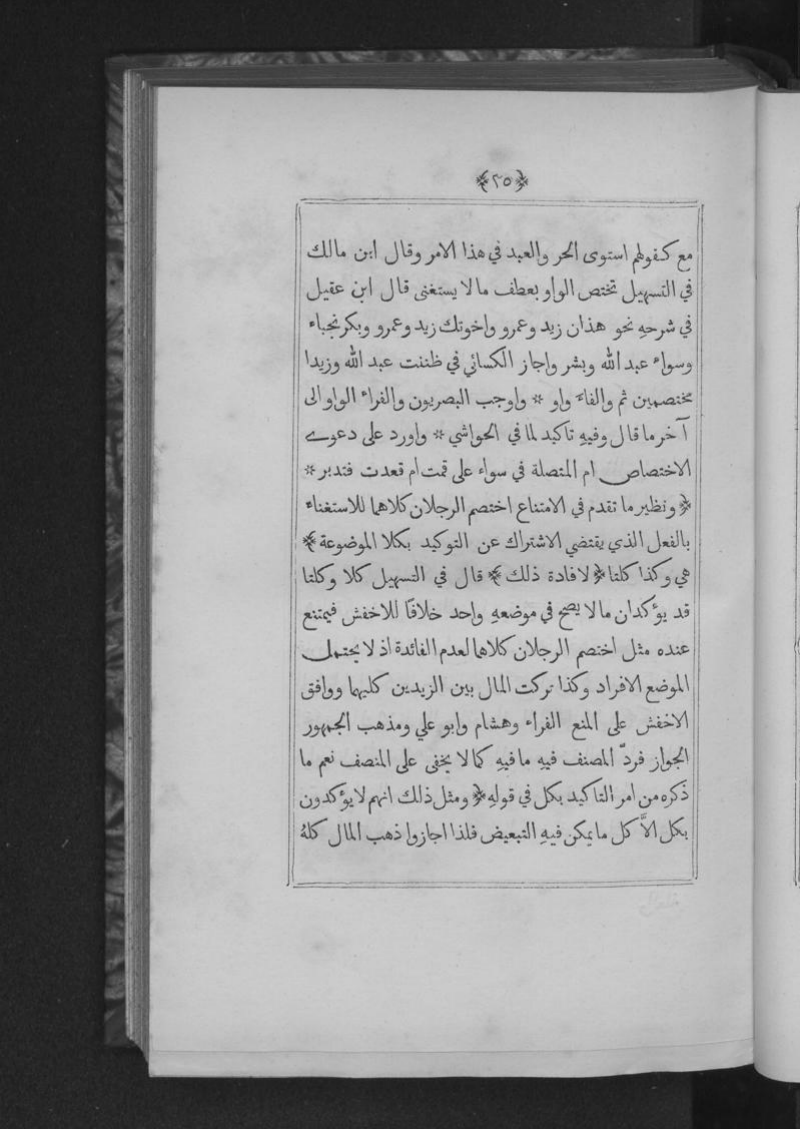 ﴿٢٥﴾
مع كقولهم استوى الحر والعبد في هذا الامر وقال ابن مالك
في التسهيل تختص الواو بعطف ما لا يستغنى قال ابن عقيل
في شرحهِ نحو هذان زيد وعمرو واخوتك زيد وعمرو وبكر نجباء
وسواء عبد الله وبشر واجاز الكسائي في ظننت عبد الله وزيدا
مختصمين ثم والفاء واو * واوجب البصريون والفراء الواو الى
آخر ما قال وفيهِ تاكيد لما في الحواشي * واورد على دعوے
الاختصاص ام المتصلة في سواء على قمت ام قعدت فتدبر *
﴿ ونظير ما تقدم في الامتناع اختصم الرجلان كلاهما للاستغناء
بالفعل الذي يقتضي الاشتراك عن التوكيد بكلا الموضوعة ﴾
هي وكذا كلتا ﴿ لافادة ذلك ﴾ قال في التسهيل كلا وكلتا
قد يؤكدان ما لا يصح في موضعهِ واحد خلافًا للاخفش فيمتنع
عنده مثل اختصم الرجلان كلاهما لعدم الفائدة اذ لا يحتمل
الموضع الافراد وكذا تركت المال بين الزيدين كليهما ووافق
الاخفش على المنع الفراء وهشام وابو علي ومذهب الجمهور
الجواز فردّ المصنف فيهِ ما فيهِ كما لا يخفى على المنصف نعم ما
ذكره من امر التاكيد بكل في قولهِ ﴿ ومثل ذلك انهم لا يؤكدون
بكل الاَّ كل ما يمكن فيهِ التبعيض فلذا اجازوا ذهب المال كلهُ